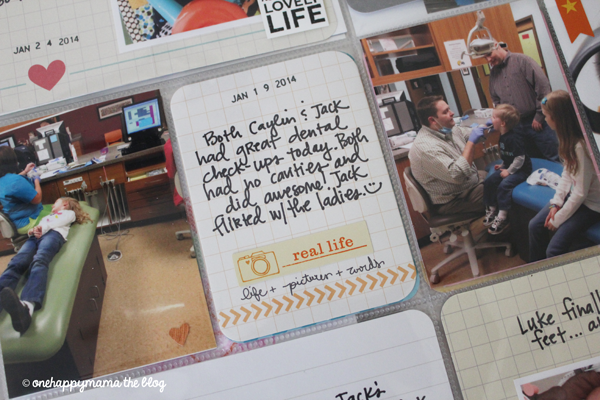 LOVELY
LIFE
JAN 24 2014
JAN 19 2014
Both Caylin & Jack
had great dental
check-ups today. Both
had no cavities and
did awesome! Jack
flirted w/ the ladies.
real life
life + pictures + words
Luke finall
feet... a
Jack's
© onehappymama the blog